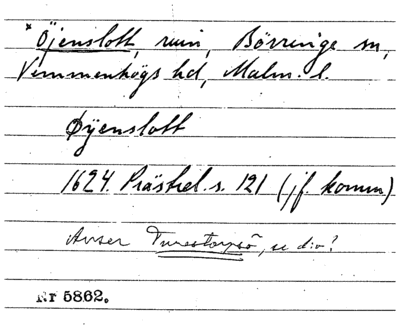 * Öjenslott, ruin, Börringe sn,
Vemmenhögs hd, Malm. l.
Øÿenslott
1624. Prästrel. s. 121 (jf. komm)
Avser Turestorpsö, se d:o?
Nr 5862.